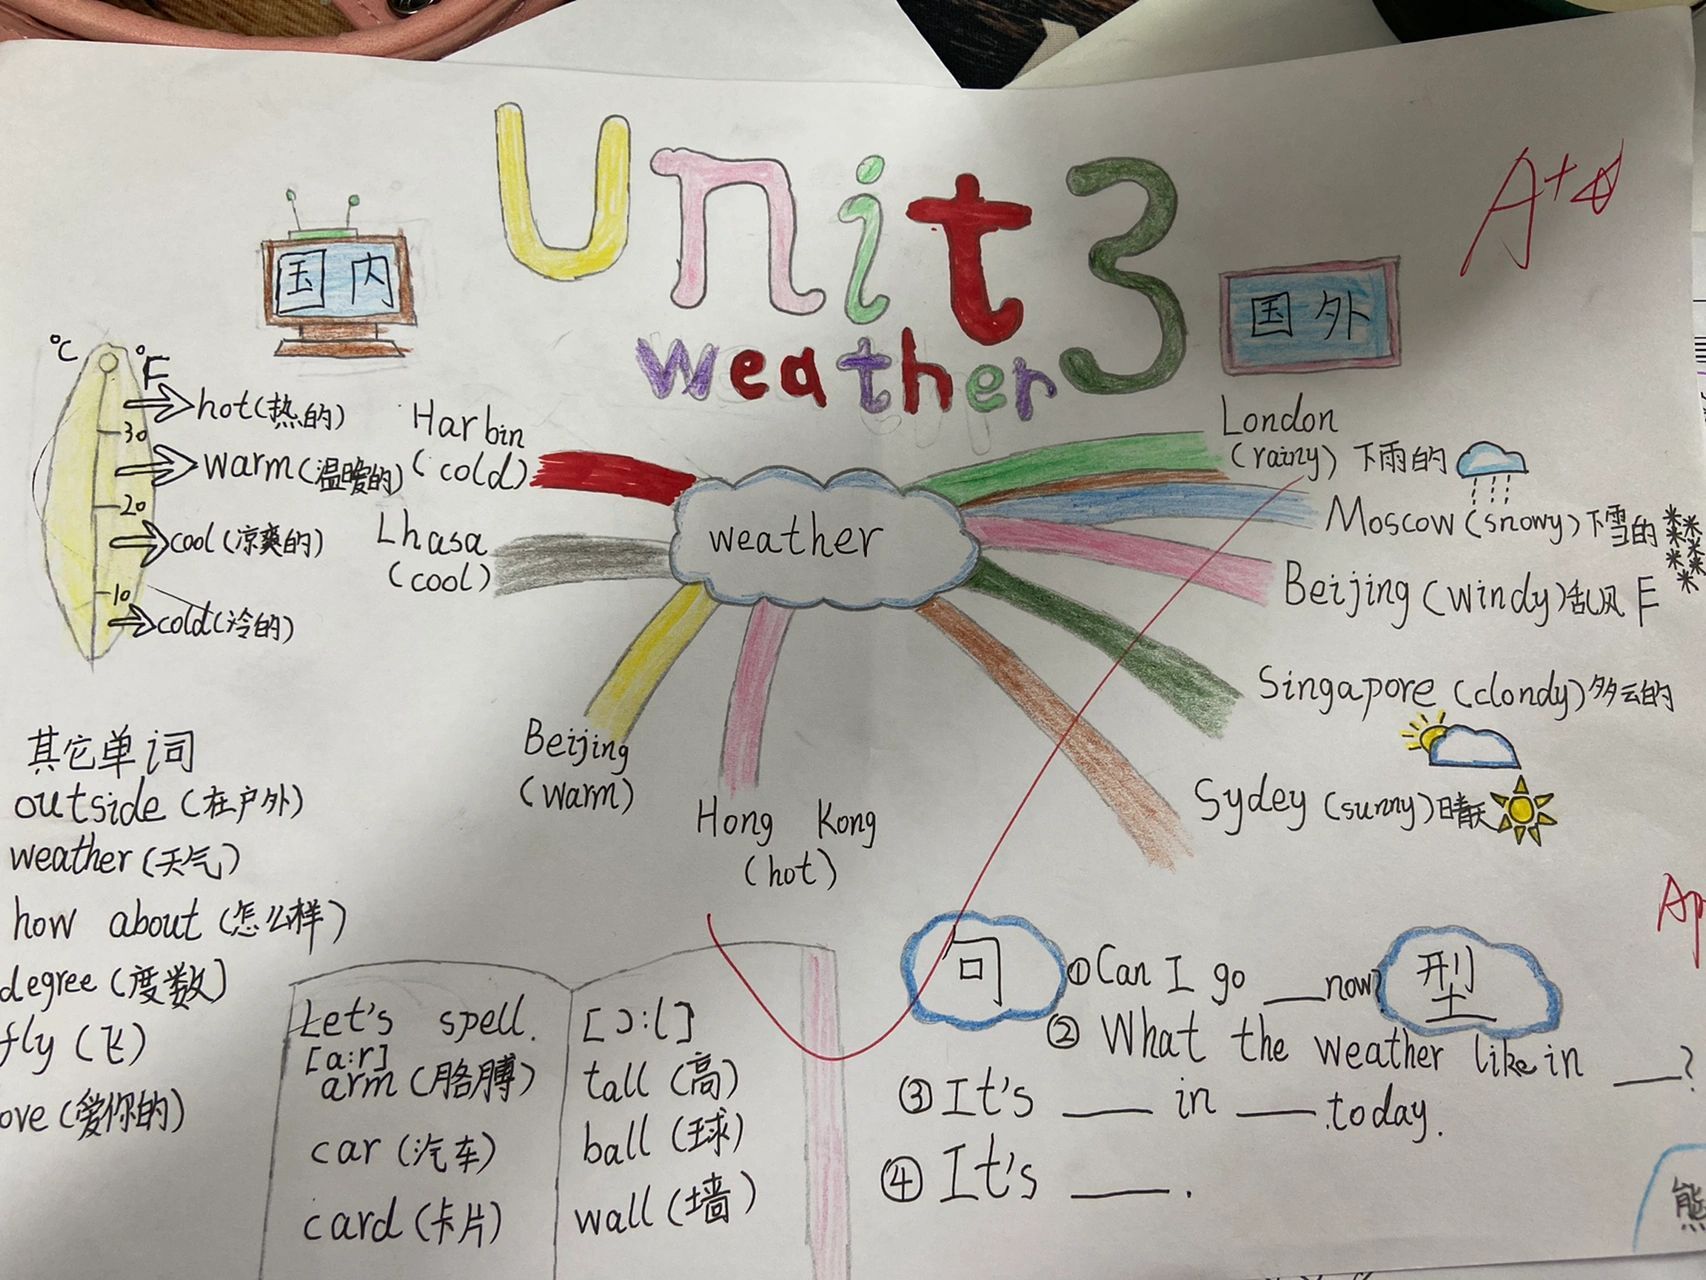 Unit 3
weather
A+
国内
国外
°C °F
hot(热的)
30
warm(温暖的)
20
cool(凉爽的)
10
cold(冷的)
Harbin
(cold)
Lhasa
(cool)
Beijing
(warm)
Hong Kong
(hot)
weather
London
(rainy) 下雨的
Moscow(snowy)下雪的
Beijing(windy)乱风
Singapore(clondy)多云的
Sydey(sunny)晴天
其它单词
outside(在户外)
weather(天气)
how about(怎么样)
degree(度数)
fly(飞)
ove(爱你的)
Let's spell.
[a:r]
arm(胳膊)
car(汽车)
card(卡片)
[ɔ:l]
tall(高)
ball(球)
wall(墙)
句型
①Can I go ___now?
② What the weather like in ___?
③It's ___ in ___ today.
④It's ___.
Ap
熊